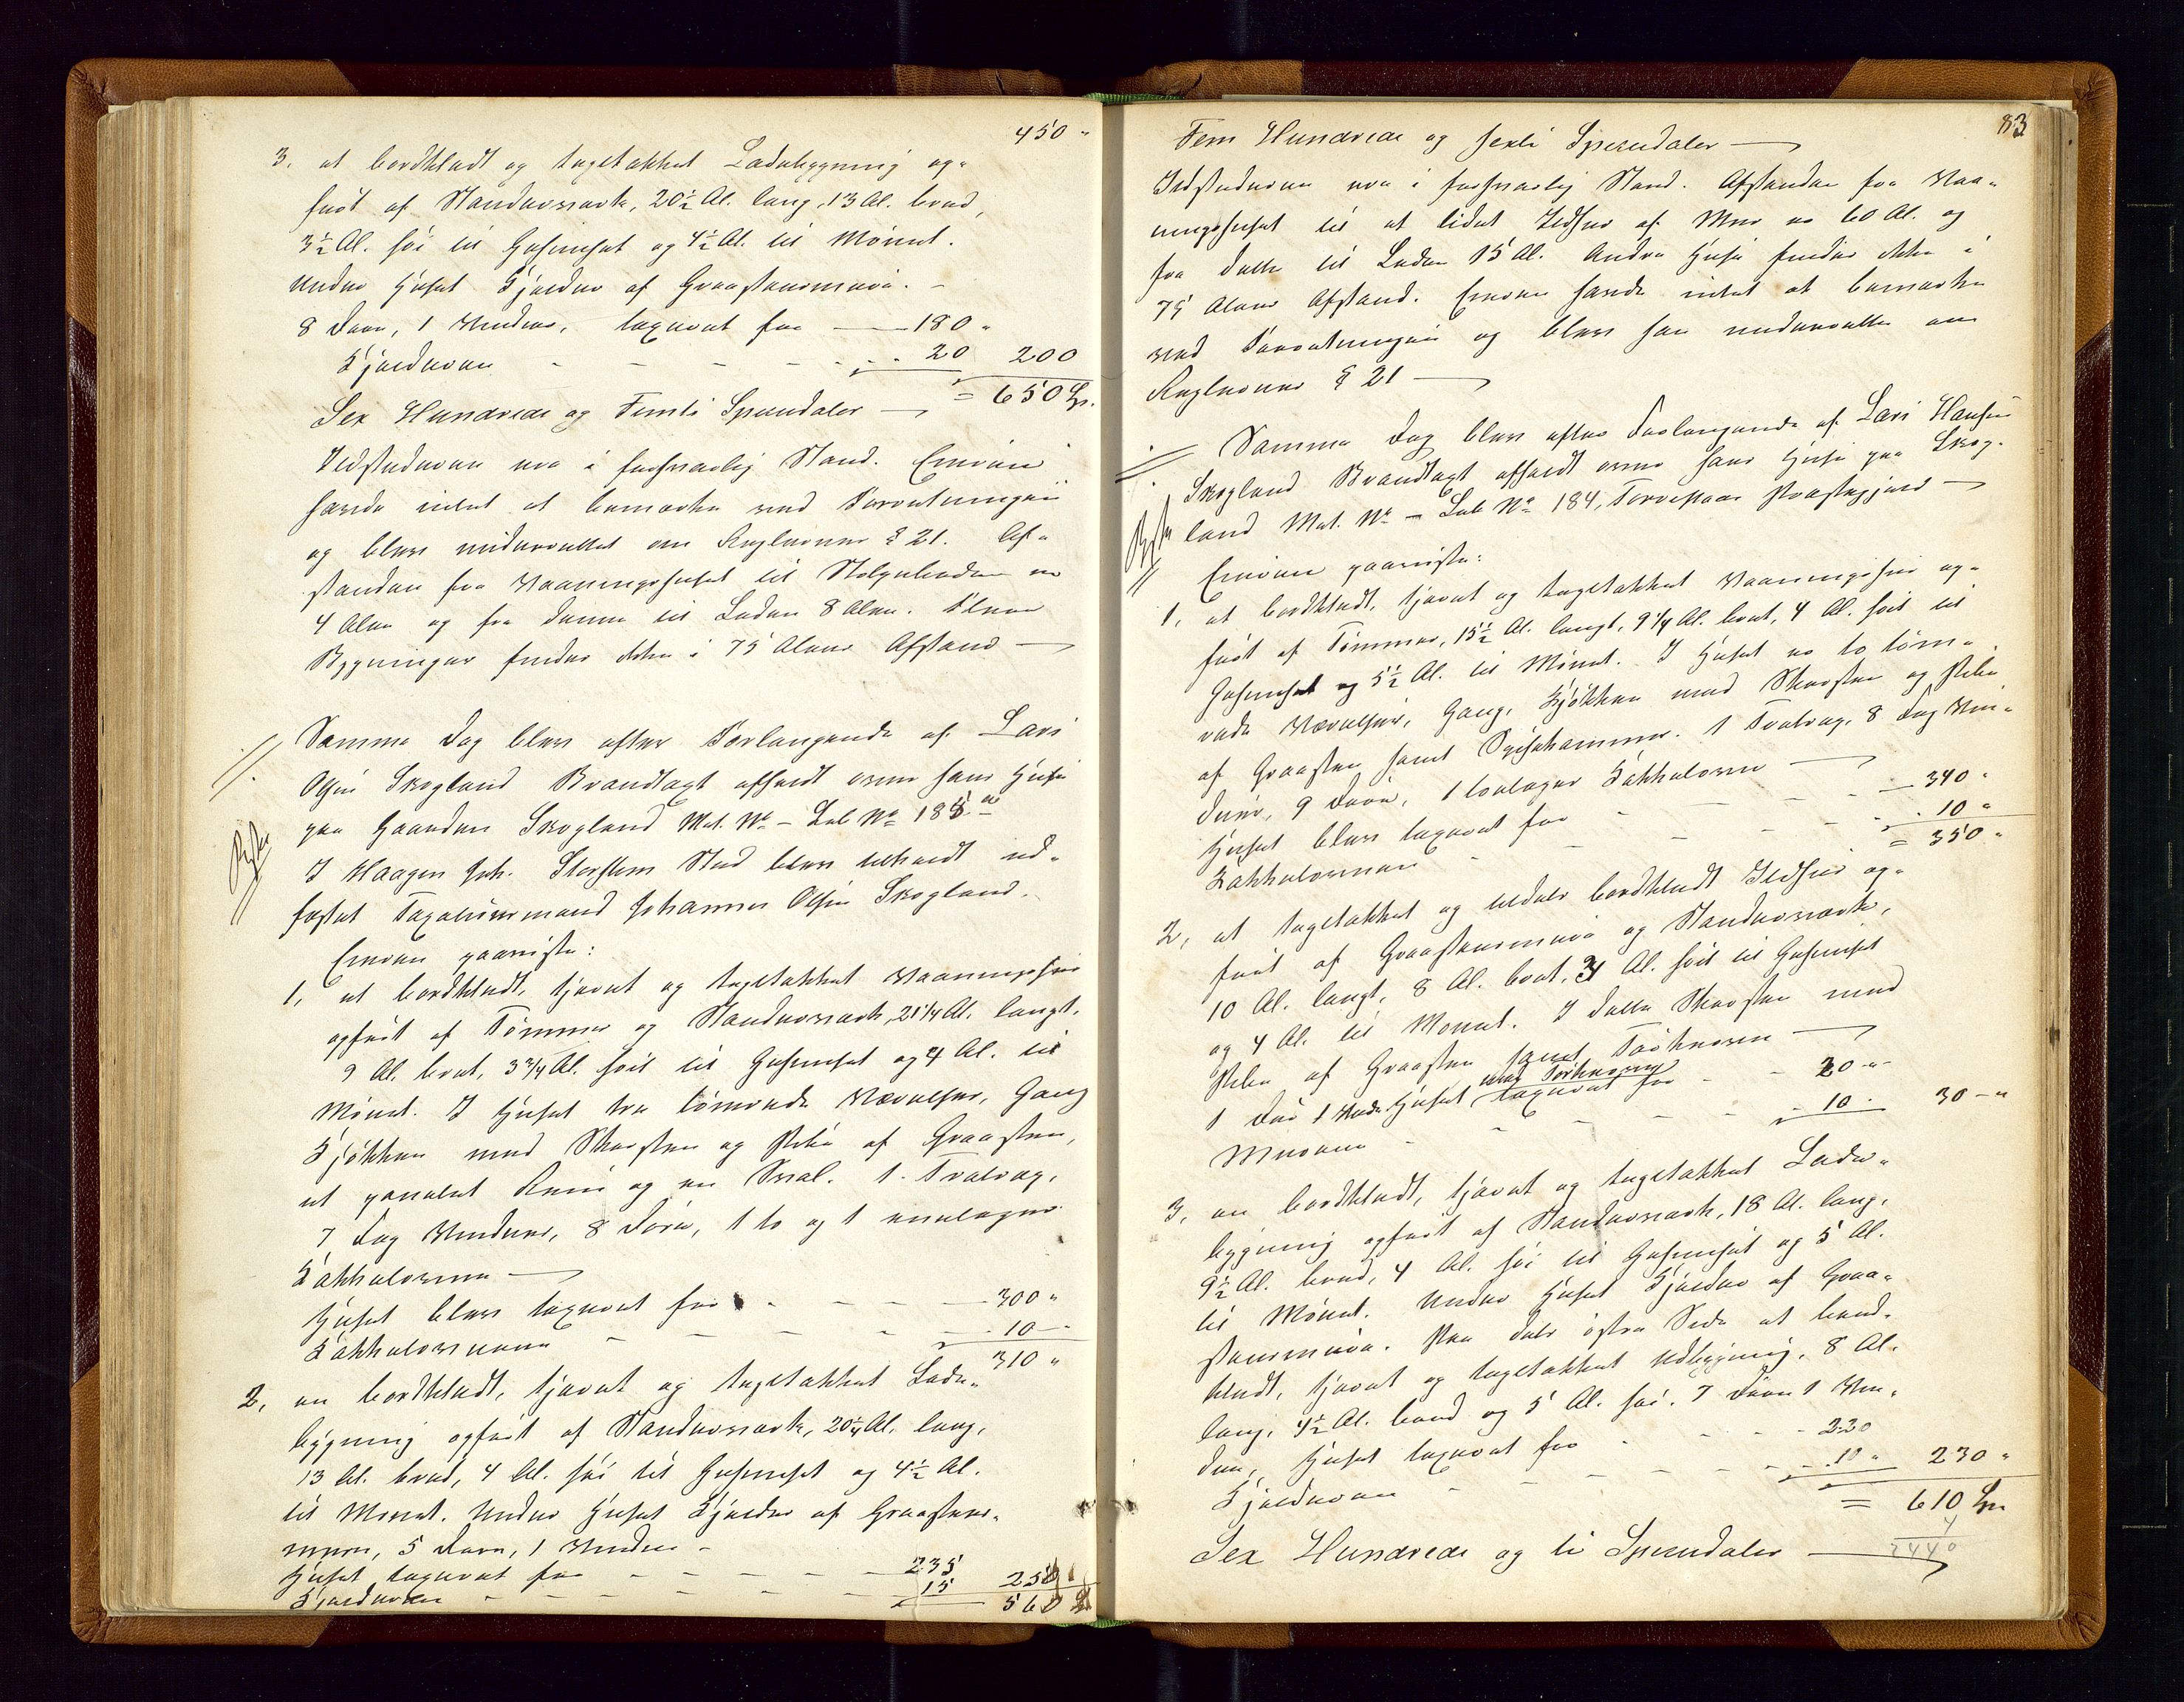 450 "
3. et bordklædt og tegltækket Ladebygning op-
ført af Standerværk, 20½ Al. lang, 13 Al. bred,
3½ Al. høi til Gesimset og 4½ Al. til Mønet.
Under Huset Kjælder af Graastensmure. -
8 Døre, 1 Vindue, taxeret for — 180 "
Kjælderen - - - - - 20 200
Sex Hundrede og Femti Speciedaler — = 650 Sp.
Ildstederne var i forsvarlig Stand. Eieren
havde intet at bemærke ved Forretningen
og blev underrettet om Reglerne § 21. Af-
standen fra Vaaningshuset til Stolpeboden er
4 Alen og fra denne til Laden 8 Alen. Flere
Bygninger findes ikke i 75 Alens Afstand —
Samme Dag blev efter Forlangende af Lars
Olsen Skogland Brandtaxt afholdt over hans Huse
paa Gaarden Skogland Mat. No - Løb No 185 a
I Haagen Joh. Storstens Sted blev tilkaldt ed-
fæstet Taxationsmand Johannes Olsen Skogland.
Eieren paaviste:
1, et bordklædt, tjæret og tegltækket Vaaningshus
opført af Tømmer og Standerværk, 21¼ Al. langt,
9 Al. bredt, 3¾ Al. høit til Gesimset og 4 Al. til
Mønet. I Huset tre tømrede Værelser, Gang
Kjøkken med Skorsten og Pibe af Graasten,
et panelet Rum og en Sval. 1 Tralvag,
7 Fag Vinduer, 8 Døre, 1 to og 1 enetages
Kakkelovne —
Huset blev taxeret for - - - 300 "
Kakkelovnene - - - - 10 -
310 "
2, en bordklædt, tjæret og tegltækket Lade-
bygning opført af Standerværk, 20¼ Al. lang,
13 Al. bred, 4 Al. høi til Gesimset og 4½ Al.
til Mønet. Under Huset Kjælder af Graastens-
mure, 5 Døre, 1 Vindue -
Huset taxeret for - - - - 235
Kjælderen - - - - 15 250
560
83
Fem Hundrede og sexti Speciedaler —
Ildstederne var i forsvarlig Stand. Afstanden fra Vaa-
ningshuset til et lidet Ildhus af Mur er 60 Al. og
fra dette til Laden 15 Al. Andre Huse findes ikke i
75 Alens Afstand. Eieren havde intet at bemærke
ved Forretningen og blev han underrettet om
Reglerne § 21 —
Samme Dag blev efter Forlangende af Lars Hansen
Skogland Brandtaxt afholdt over hans Huse paa Skog-
land Mat. No - Løb No 184, Torvestad Præstegjæld —
Eieren paaviste:
1, et bordklædt, tjæret og tegltækket Vaaningshus op-
ført af Tømmer, 15½ Al. langt, 9¼ Al. bredt, 4 Al. høit til
Gesimset og 5½ Al. til Mønet. I Huset er to tøm-
rede Værelser, Gang, Kjøkken med Skorsten og Pibe
af Graasten samt Spisekammer. 1 Tralvag, 8 Fag Vin-
duer, 9 Døre, 1 toetages Kakkelovn —
Huset blev taxeret for - - - 340 "
Kakkelovnen - - - - 10 "
= 350 "
2, et tegltækket og tildels bordklædt Ildhus op-
ført af Graastensmure og Standerværk,
10 Al. langt, 8 Al. bredt, 3 Al. høit til Gesimset
og 4 Al. til Mønet. I dette Skorsten med
Pibe af Graasten samt Tørkeovn —
1 Dør 1 Vindu Huset med Tørkeovn taxeret for - - 20 " -
Murene - - - - 10 - 30 - "
3, en bordklædt, tjæret og tegltækket Lade-
bygning opført af Standerværk, 18 Al. lang,
9½ Al. bred, 4 Al. høi til Gesimset og 5 Al.
til Mønet. Under Huset Kjælder af Graa-
stensmure. Paa dets østre Side et bord-
klædt, tjæret og tegltækket Udbygning, 8 Al.
lang, 4½ Al. bred og 5 Al. høi. 7 Døre 1 Vin-
due, Huset taxeret for - - - 220
Kjælderen - - - - 10 " 230 "
= 610 Sp.
Sex Hundrede og ti Speciedaler —
4
2440